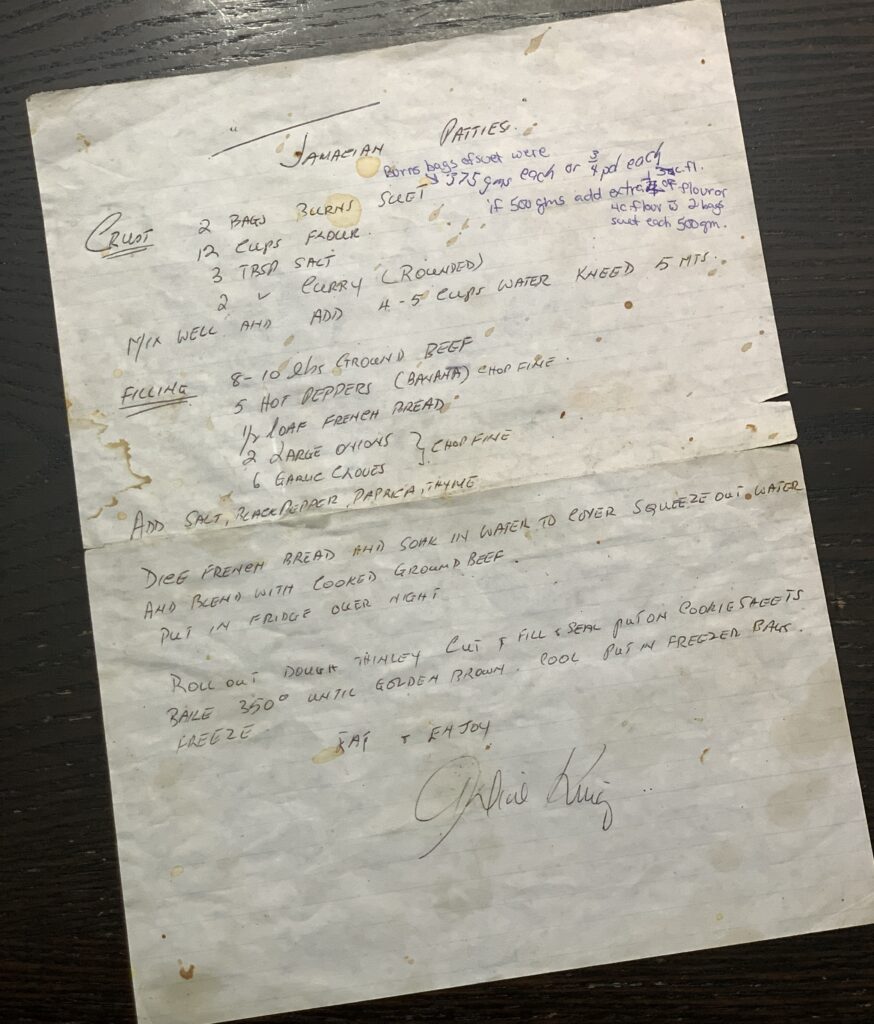 " JAMACIAN PATTIES. "
Burns bags of suet were
375 gms each or 3/4 pd each
if 500 gms add extra 3 c. fl. of flour or
4c. flour 2 bags
suet each 500gm.
CRUST 2 BAGS BURNS SUET
12 CUPS FLOUR.
3 TBSP SALT
2 " CURRY (ROUNDED)
MIX WELL AND ADD 4-5 CUPS WATER KNEED 5 MTS.
FILLING 8-10 lbs GROUND BEEF
5 HOT PEPPERS (BANANA) CHOP FINE.
1/2 LOAF FRENCH BREAD
2 LARGE ONIONS } CHOP FINE
6 GARLIC CLOVES
ADD SALT, BLACK PEPPER, PAPRICA, THYME
DICE FRENCH BREAD AND SOAK IN WATER TO COVER SQUEEZE OUT WATER
AND BLEND WITH COOKED GROUND BEEF.
PUT IN FRIDGE OVER NIGHT
ROLL OUT DOUGH THINLEY CUT & FILL & SEAL PUT ON COOKIE SHEETS
BAKE 350° UNTIL GOLDEN BROWN. COOL PUT IN FREEZER BAGS.
FREEZE
EAT & ENJOY
King